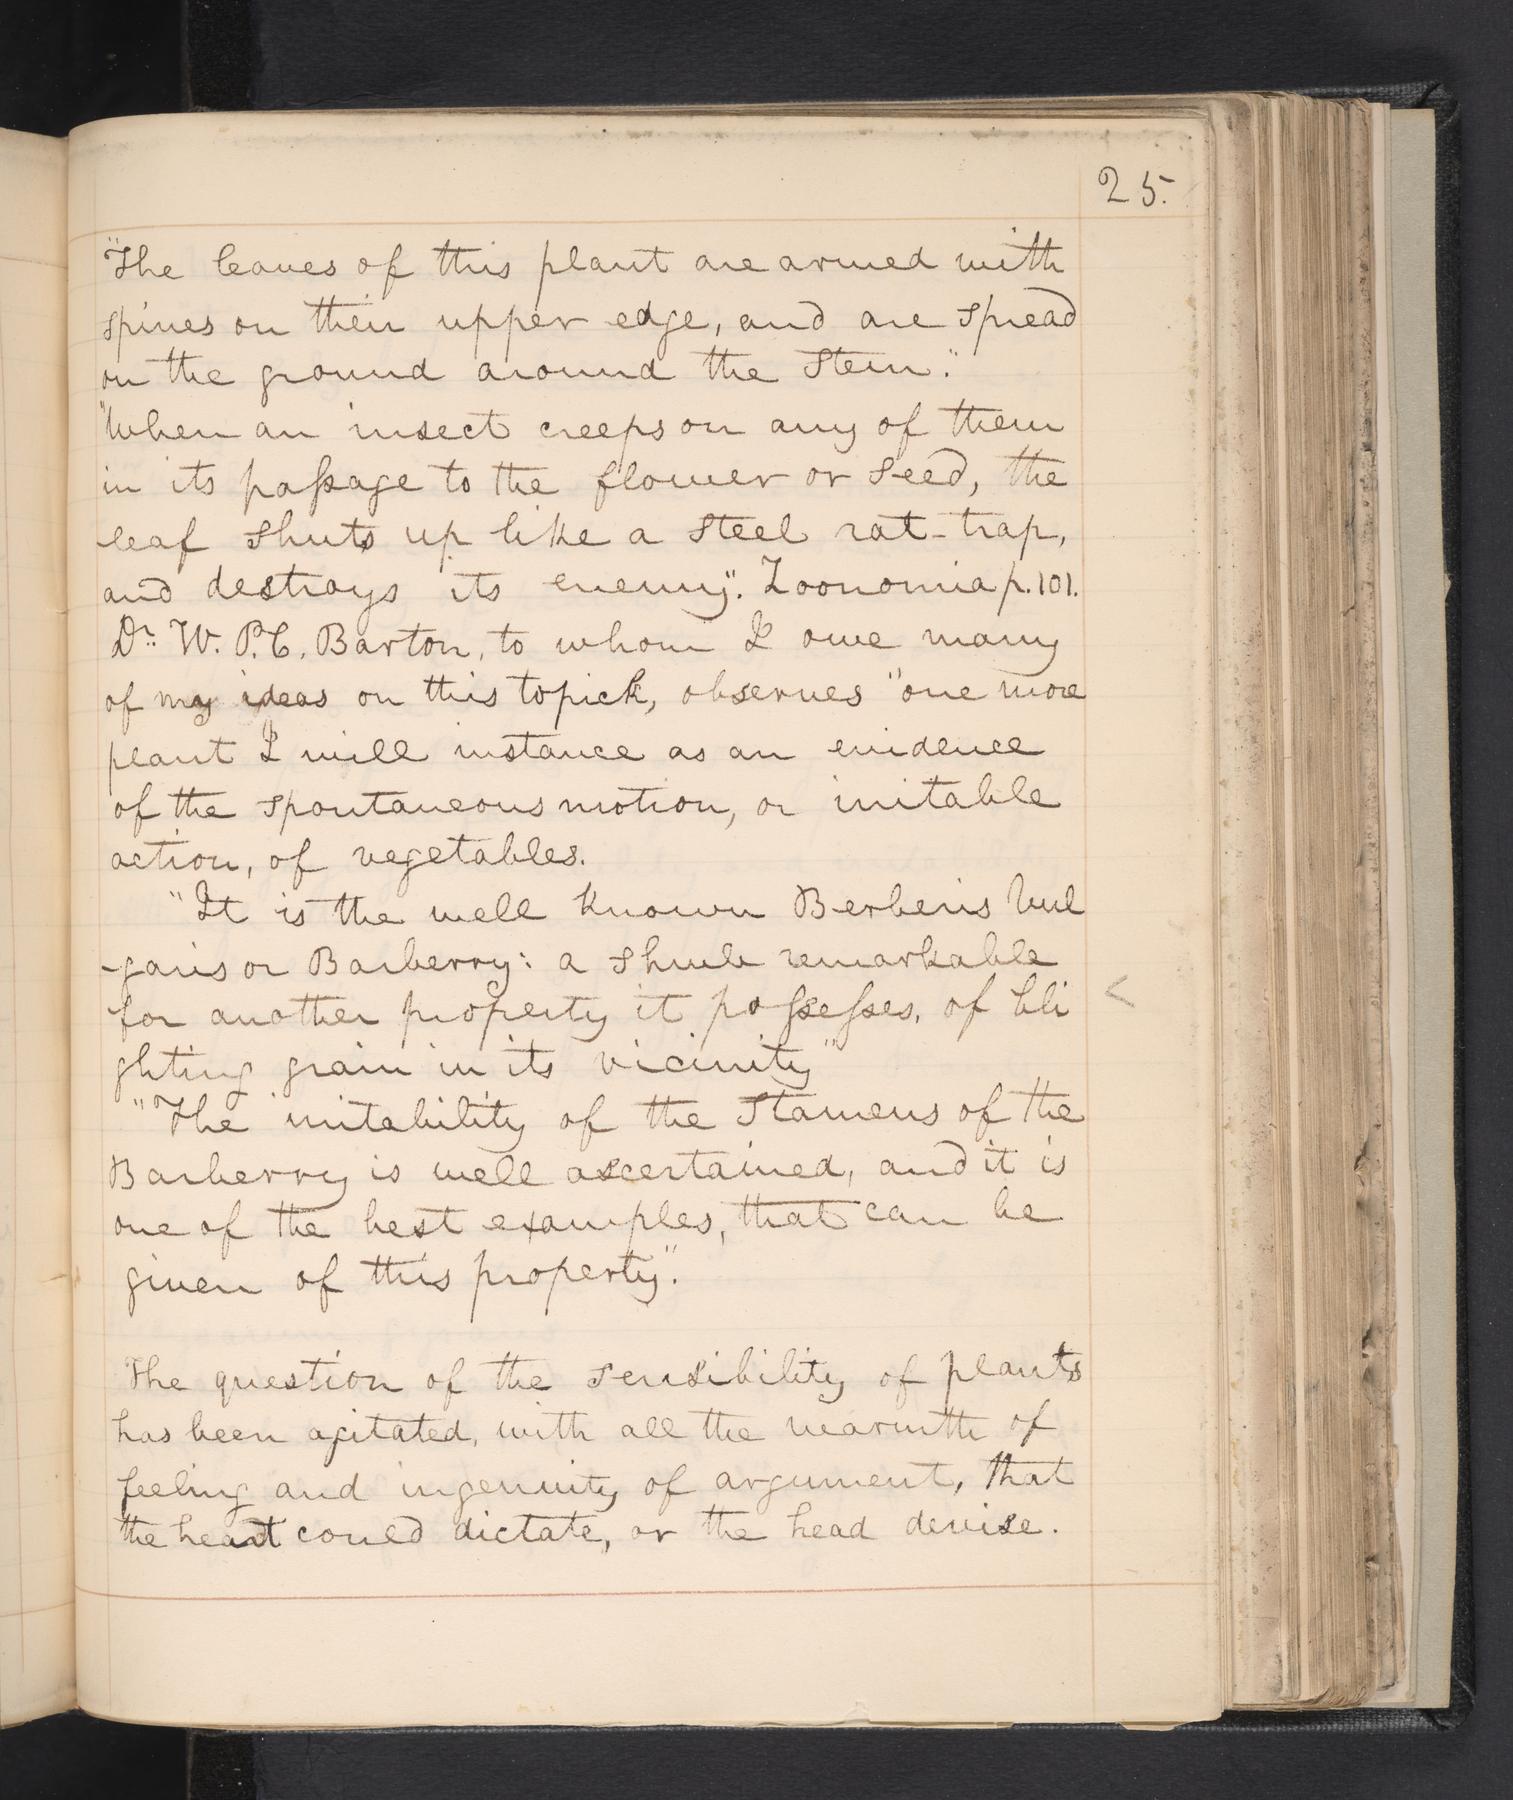 25.
"The leaves of this plant are armed with
spines on their upper edge, and are spread
on the ground around the Stem."
"When an insect creeps on any of them
in its passage to the flower or seed, the
leaf shuts up like a steel rat-trap,
and destroys its enemy". Zoonomia p. 101.
Dr. W. P. C. Barton, to whom I owe many
of my ideas on this topick, observes "one more
plant I will instance as an evidence
of the spontaneous motion, or irritable
action, of vegetables.
"It is the well known Berberis Vul
-garis or Barberry: a shrub remarkable
for another property it possesses, of bli
<
ghting grain in its vicinity"
"The irritability of the Stamens of the
Barberry is well ascertained, and it is
one of the best examples, that can be
given of this property".
The question of the sensibility of plants
has been agitated, with all the warmth of
feeling and ingenuity of argument, that
the heart could dictate, or the head devise.